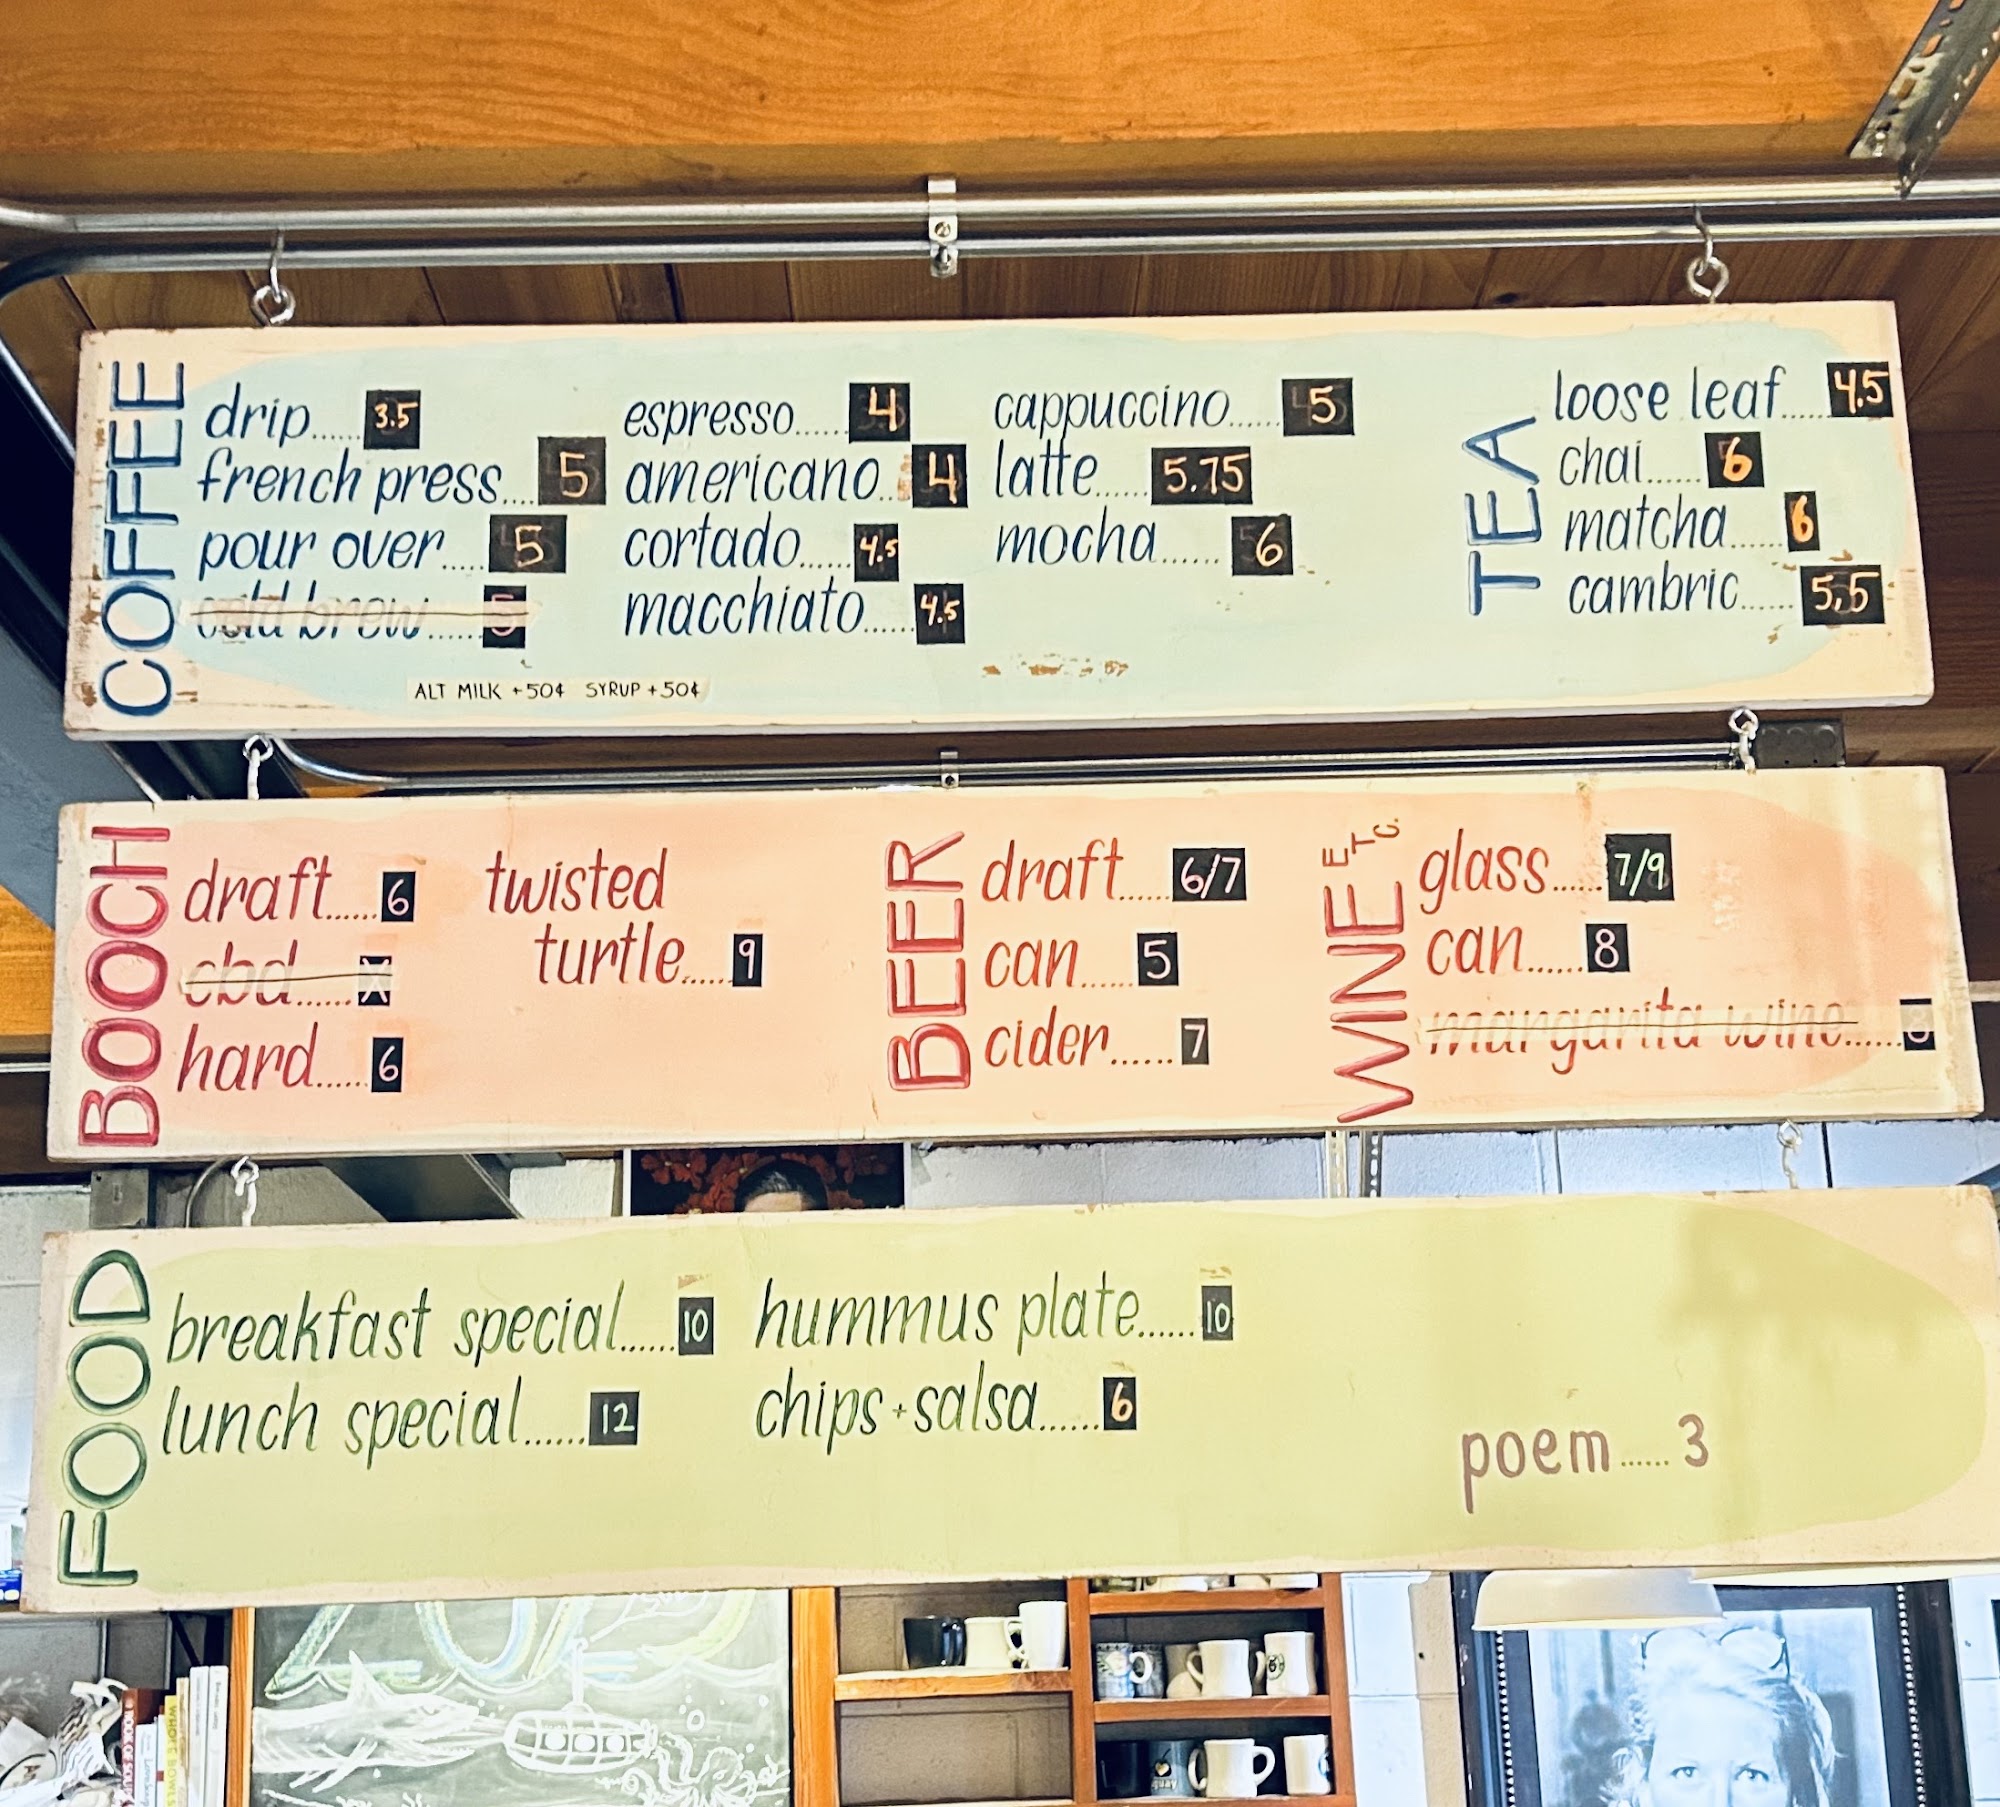 COFFEE
drip......3.5
french press....5
pour over.....5
cold brew......5
espresso......4
americano..4
cortado......4.5
macchiato......4.5
cappuccino......5
latte......5.75
mocha......6
ALT MILK +50¢ SYRUP +50¢
TEA
loose leaf......4.5
chai......6
matcha......6
cambric......5,5
BOOCH
draft......6
cbd......X
hard......6
twisted
turtle.....9
BEER
draft......6/7
can......5
cider......7
WINE ETC.
glass......7/9
can......8
margarita wine......8
FOOD
breakfast special......10
lunch special......12
hummus plate......10
chips+salsa......6
poem......3